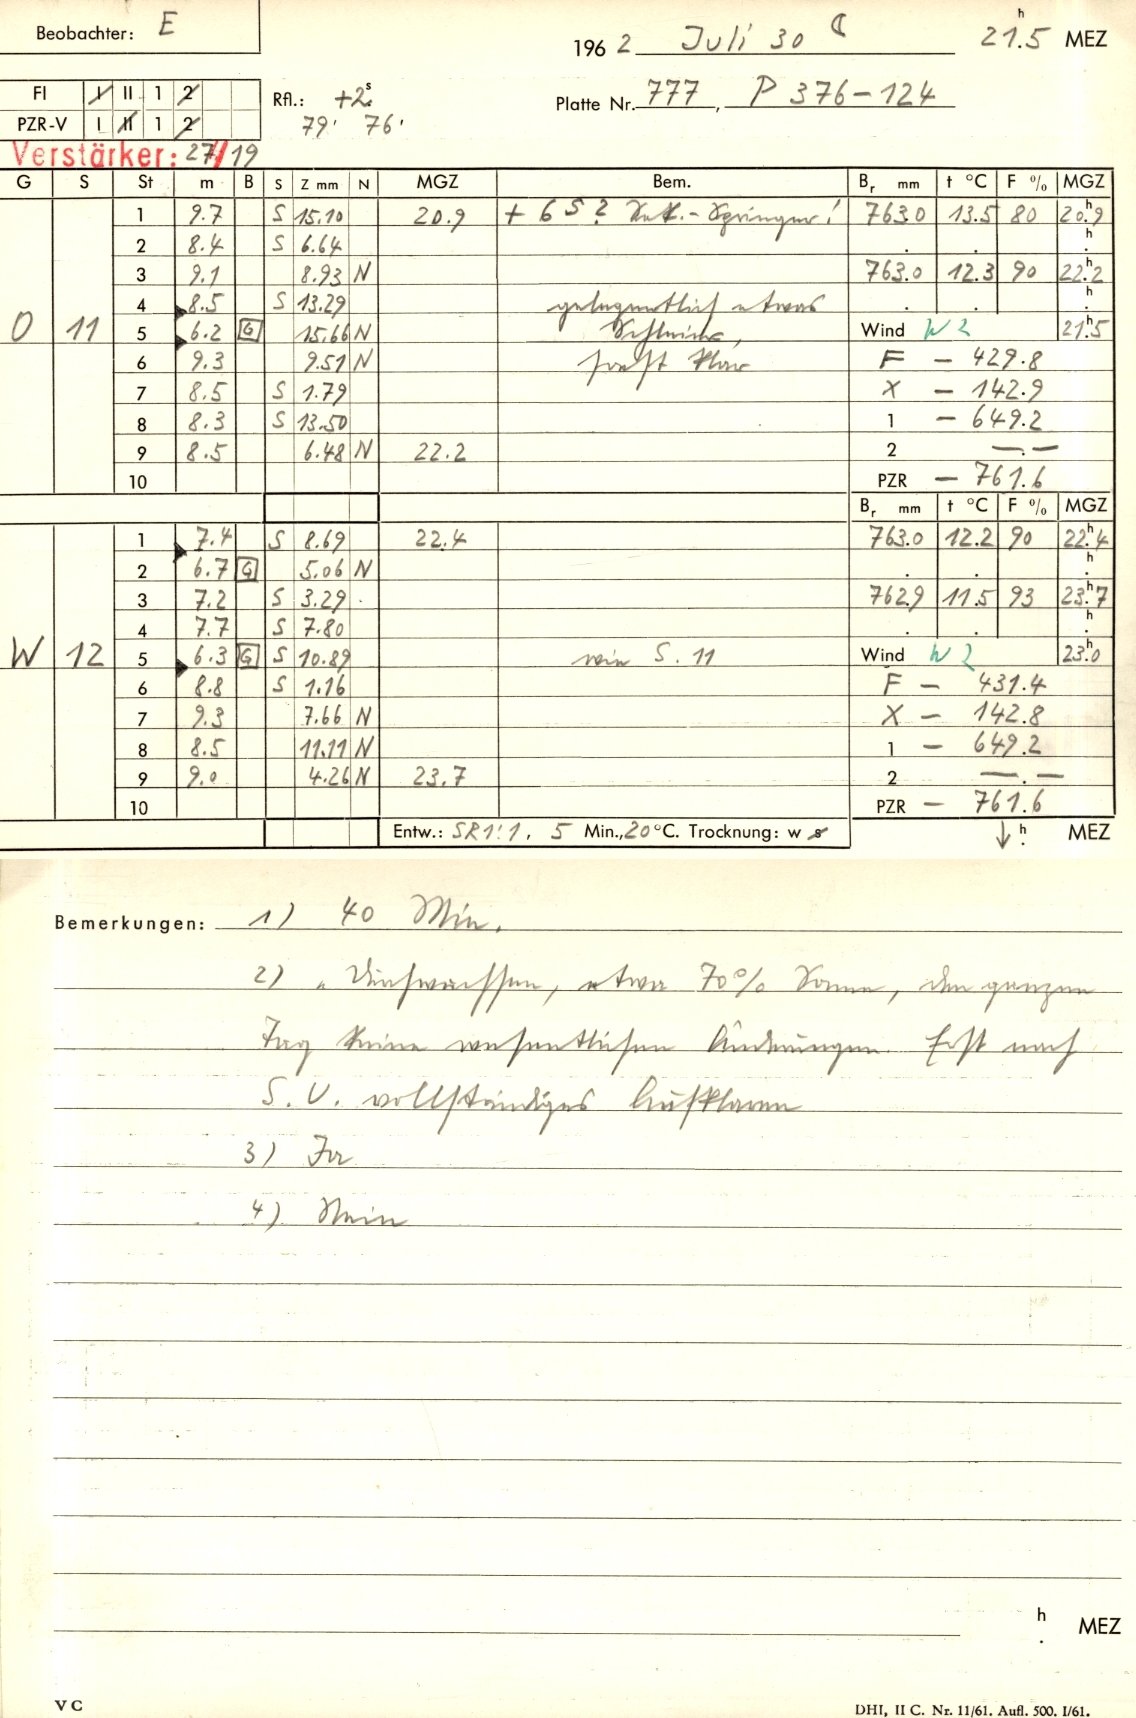 Beobachter: E
1962 Juli 30 21.5 h MEZ
FI I II 1 2
PZR-V I II 1 2
Rfl.: +2.s
79' 76'
Platte Nr. 777, P 376-124
Verstärker: 27/19
G S St m B S Z mm N MGZ Bem. Br mm t °C F % MGZ
1 9.7 S 15.10 20.9 + 6 S? Sek.-Springer! 763.0 13.5 80 20.9 h
2 8.4 S 6.64 . . . h
3 9.1 8.93 N 763.0 12.3 90 22.2 h
4 8.5 S 13.29 gelegentlich etwas . . . h
O 11 5 6.2 G 15.66 N Schleier, Wind W 2 21.5 h
6 9.3 9.51 N sonst klar F - 429.8
7 8.5 S 1.79 X - 142.9
8 8.3 S 13.50 1 - 649.2
9 8.5 6.48 N 22.2 2 —.—
10 PZR - 761.6
Br mm t °C F % MGZ
1 7.4 S 8.69 22.4 763.0 12.2 90 22.4 h
2 6.7 G 5.06 N . . . h
3 7.2 S 3.29 762.9 11.5 93 23.7 h
4 7.7 S 7.80 . . . h
W 12 5 6.3 G S 10.89 wie S. 11 Wind W 2 23.0 h
6 8.8 S 1.16 F - 431.4
7 9.3 7.66 N X - 142.8
8 8.5 11.11 N 1 - 649.2
9 9.0 4.26 N 23.7 2 —.—
10 PZR - 761.6
Entw.: SR1:1, 5 Min., 20 °C. Trocknung: w s ↓ h . MEZ
Bemerkungen: 1) 40 Min.
2) etwa 70% Sonne, den ganzen
Tag keine wesentlichen Änderungen. Erst nach
S.U. vollständiges Aufklaren
3) Ja
4) Nein
h . MEZ
V C
DHI, II C. Nr. 11/61. Aufl. 500. I/61.